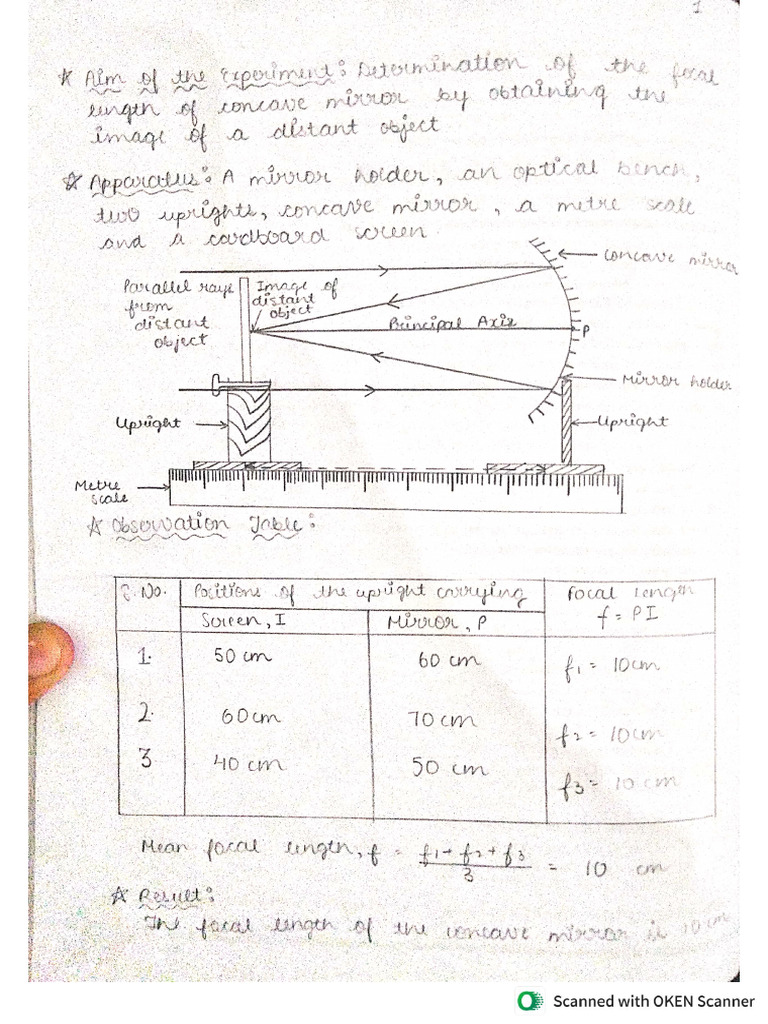 1
* Aim of the Experiment: Determination of the focal
length of concave mirror by obtaining the
image of a distant object
* Apparatus: A mirror holder, an optical bench,
two uprights, concave mirror, a metre scale
and a cardboard screen.
Concave mirror
Parallel rays
from
distant
object
Image of
distant
object
Principal Axis
P
Mirror holder
Upright
Upright
Metre
scale
* Observation Table:
S.No. Positions of the upright carrying Focal length
Screen, I Mirror, P f = PI
1. 50 cm 60 cm f1 = 10cm
2. 60cm 70cm f2 = 10cm
3. 40 cm 50 cm f3 = 10 cm
Mean focal length, f = f1 + f2 + f3 / 3 = 10 cm
* Result:
The focal length of the concave mirror is 10 cm
Scanned with OKEN Scanner